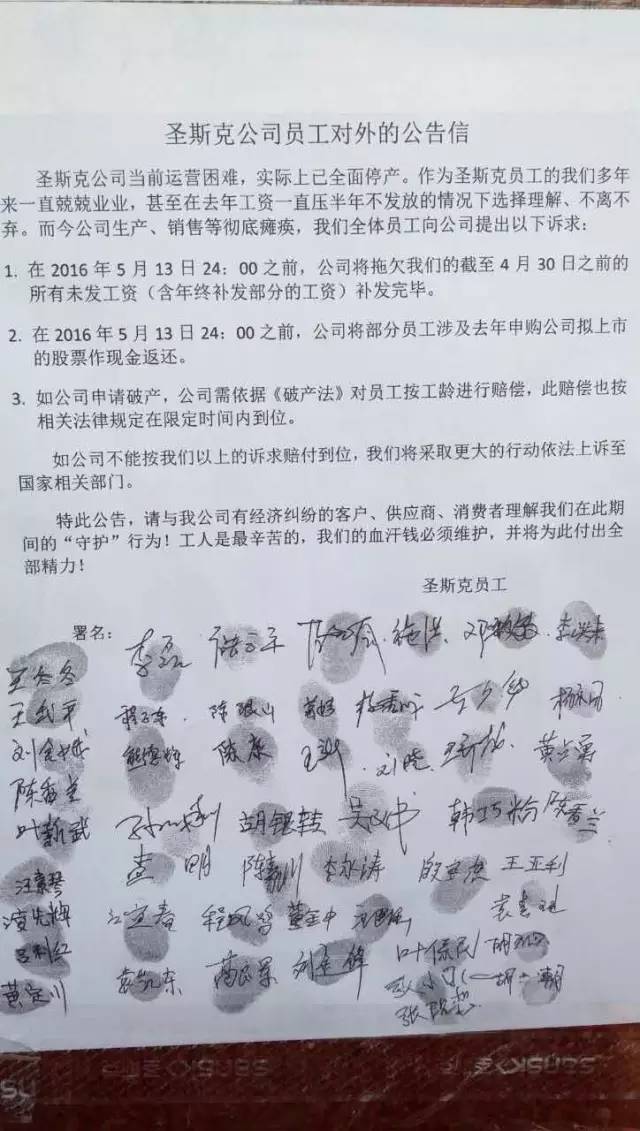 圣斯克公司员工对外的公告信
圣斯克公司当前运营困难，实际上已全面停产。作为圣斯克员工的我们多年
来一直兢兢业业，甚至在去年工资一直压半年不发放的情况下选择理解、不离不
弃。而今公司生产、销售等彻底瘫痪，我们全体员工向公司提出以下诉求：
1. 在 2016 年 5 月 13 日 24：00 之前，公司将拖欠我们的截至 4 月 30 日之前的
所有未发工资（含年终补发部分的工资）补发完毕。
2. 在 2016 年 5 月 13 日 24：00 之前，公司将部分员工涉及去年申购公司拟上市
的股票作现金返还。
3. 如公司申请破产，公司需依据《破产法》对员工按工龄进行赔偿，此赔偿也按
相关法律规定在限定时间内到位。
如公司不能按我们以上的诉求赔付到位，我们将采取更大的行动依法上诉至
国家相关部门。
特此公告，请与我公司有经济纠纷的客户、供应商、消费者理解我们在此期
间的“守护”行为！工人是最辛苦的，我们的血汗钱必须维护，并将为此付出全
部精力！
圣斯克员工
署名： 李磊 施洪
王冬冬
王武平 陈银山 杨永刚
熊雪辉 陈康 刘晓 黄兰勇
叶新武 胡银枝 韩巧粉
孟明 李永涛 殷宝杰 王亚利
汪素琴
凌先辉 江立春 程凤鸣 董金中
吕利红 叶保民
黄定川 刘金锋
SANSKY